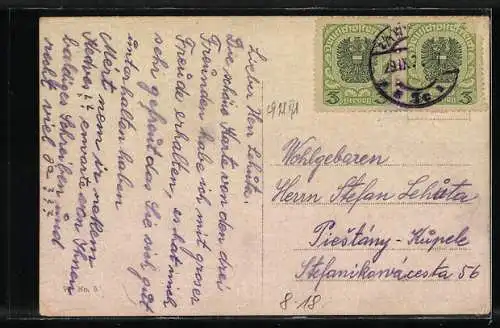 Lieber Herr Lehuta!
Die schöne Karte von den drei
Freunden habe ich mit groser
Freude erhalten, es hat mich
sehr gefreut das Sie sich gut
unterhalten haben
Mért nem ir nekem
Kedves
erwarte von Ihnen
baldiges Schreiben und
recht viel
29.IX.21
Wohlgeboren
Herrn Stefan Lehuta
Pieštány-Kúpele
Stefanikova cesta 56
8-18.
3 Kronen
3
29.IX.
No.